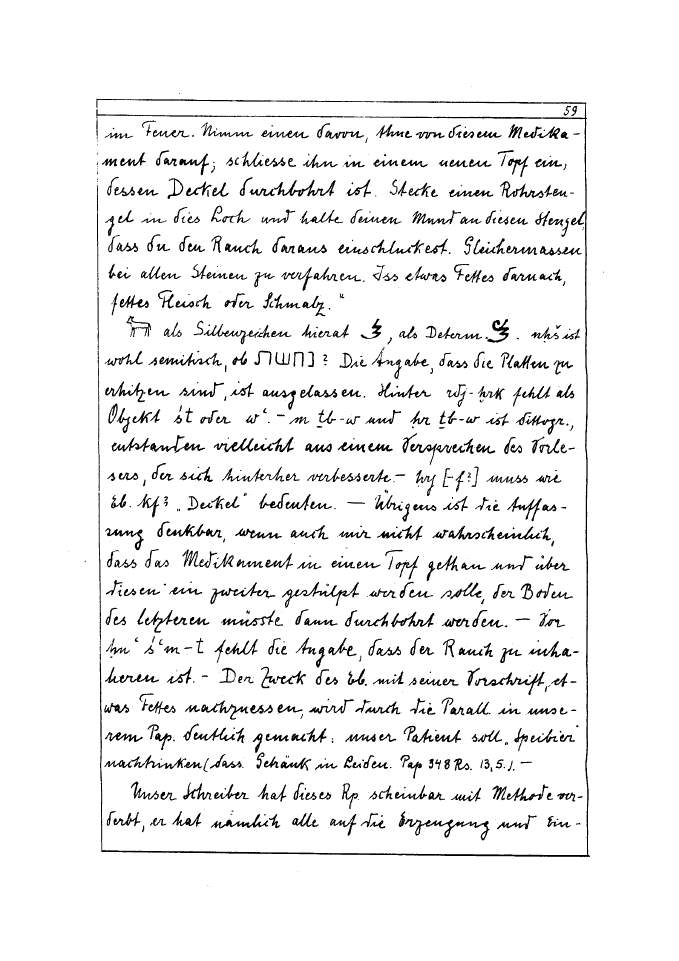 59
im Feuer. Nimm einen davon, thue von diesem Medika-
ment darauf; schliesse ihn in einem neuen Topf ein,
dessen Deckel durchbohrt ist. Stecke einen Rohrsten-
gel in dies Loch und halte deinen Mund an diesen Stengel,
dass du den Rauch daraus einschluckest. Gleichermassen
bei allen Steinen zu verfahren. Iss etwas Fettes darnach,
fettes Fleisch oder Schmalz."
als Silbenzeichen hierat , als Determ. . nḥš ist
wohl semitisch, ob ? Die Angabe, dass die Platten zu
erhitzen sind, ist ausgelassen. Hinter rdj-ḥrk fehlt als
Objekt št oder wʿ. - m ṯb-w und ḥr ṯb-w ist dittogr.,
entstanden vielleicht aus einem Versprechen des Vorle-
sers, der sich hinterher verbesserte. - [-f?] muss wie
Eb. kf? "Deckel" bedeuten. — Übrigens ist die Auffas-
sung denkbar, wenn auch mir nicht wahrscheinlich,
dass das Medikament in einen Topf gethan und über
diesen ein zweiter gestülpt werden solle, der Boden
des letzteren müsste dann durchbohrt werden. — Vor
fehlt die Angabe, dass der Rauch zu inha-
lieren ist. - Der Zweck des Eb. mit seiner Vorschrift, et-
was Fettes nachzuessen, wird durch die Parall. in unse-
rem Pap. deutlich gemacht: unser Patient soll "Speibier"
nachtrinken (dass. Getränk in Leiden. Pap 348 Rs. 13,5.). —
Unser Schreiber hat dieses Rp. scheinbar mit Methode ver-
derbt, er hat nämlich alle auf die Erzeugung und Ein-